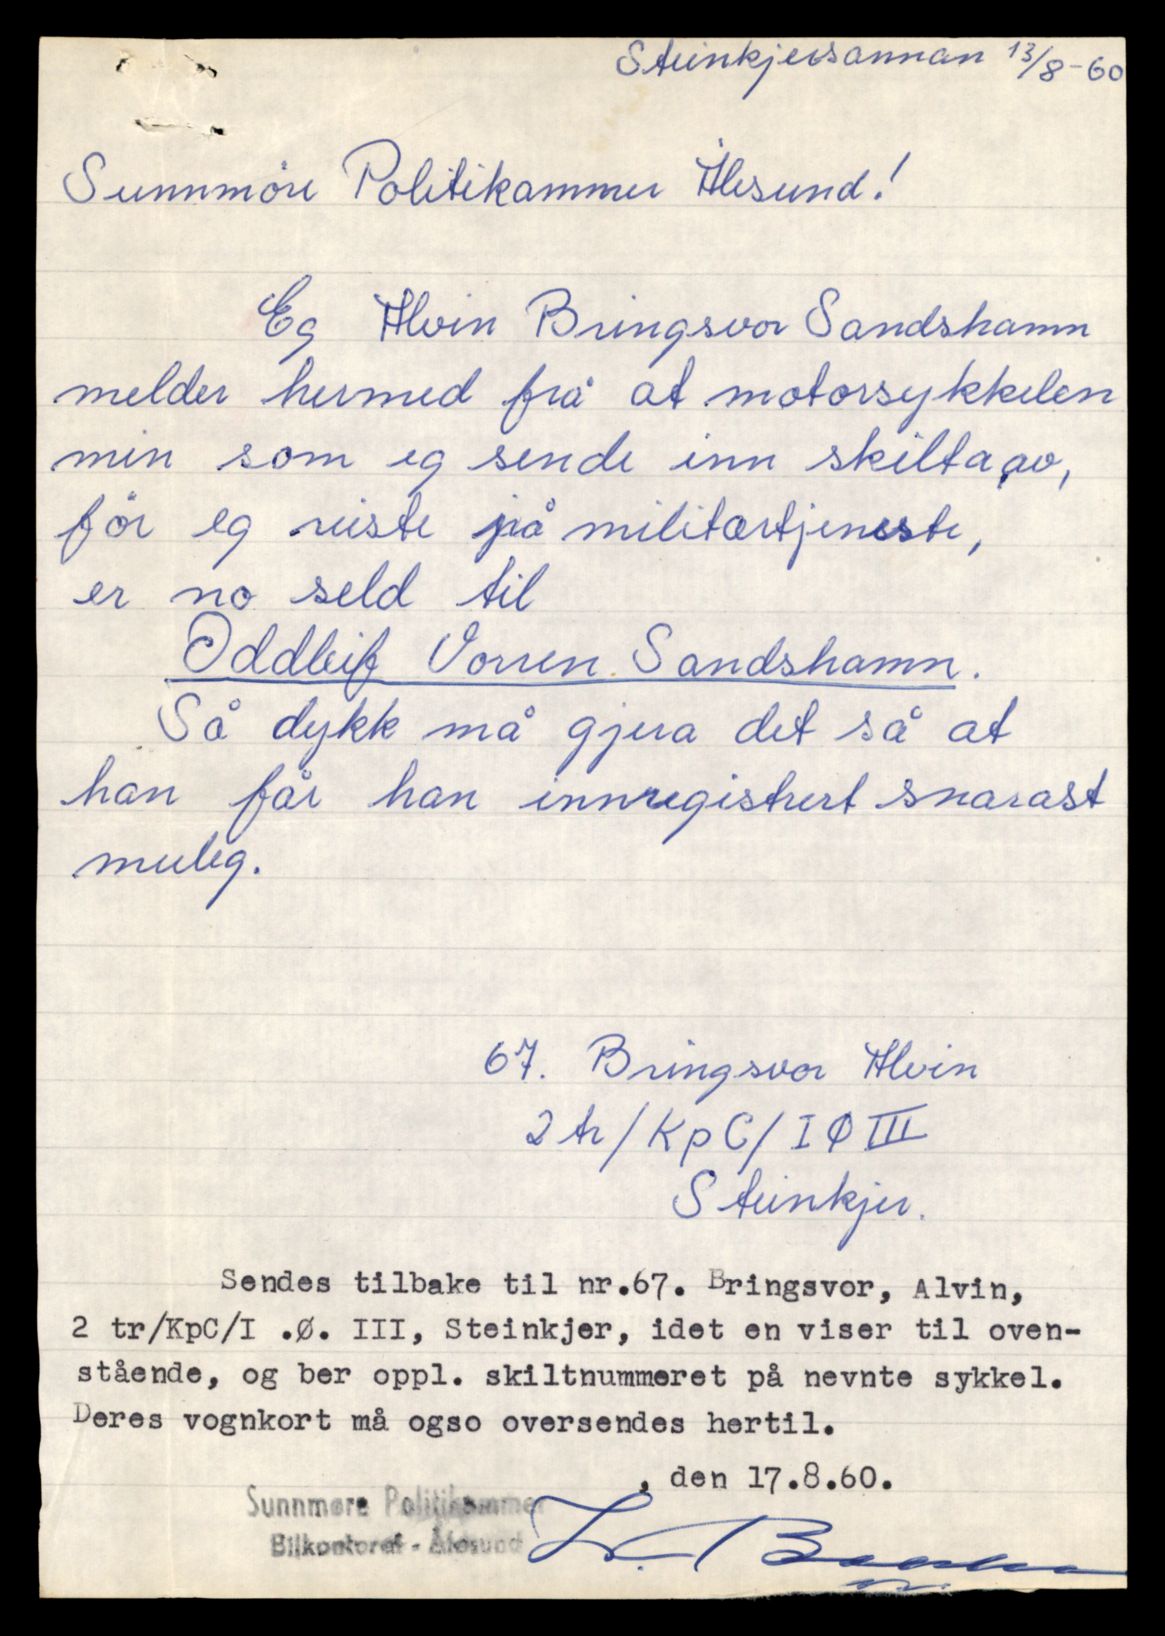 Steinkjersannan 13/8-60
Sunnmöre Politikammer Ålesund!
Eg Alvin Bringsvor Sandshamn
melder hermed frå at motorsykkelen
min som eg sende inn skilta av,
för eg reiste på militærtjeneste,
er no seld til
Oddleif Vorren. Sandshamn.
Så dykk må gjera det så at
han får han innregistrert snarast
muleg.
67. Bringsvor Alvin
2 tr/KpC/IØIII
Steinkjer.
Sendes tilbake til nr.67. Bringsvor, Alvin,
2 tr/KpC/I .Ø. III, Steinkjer, idet en viser til oven-
stående, og ber oppl. skiltnummeret på nevnte sykkel.
Deres vognkort må ogso oversendes hertil.
, den 17.8.60.
Sunnmøre Politikammer
Bilkontoret - Ålesund